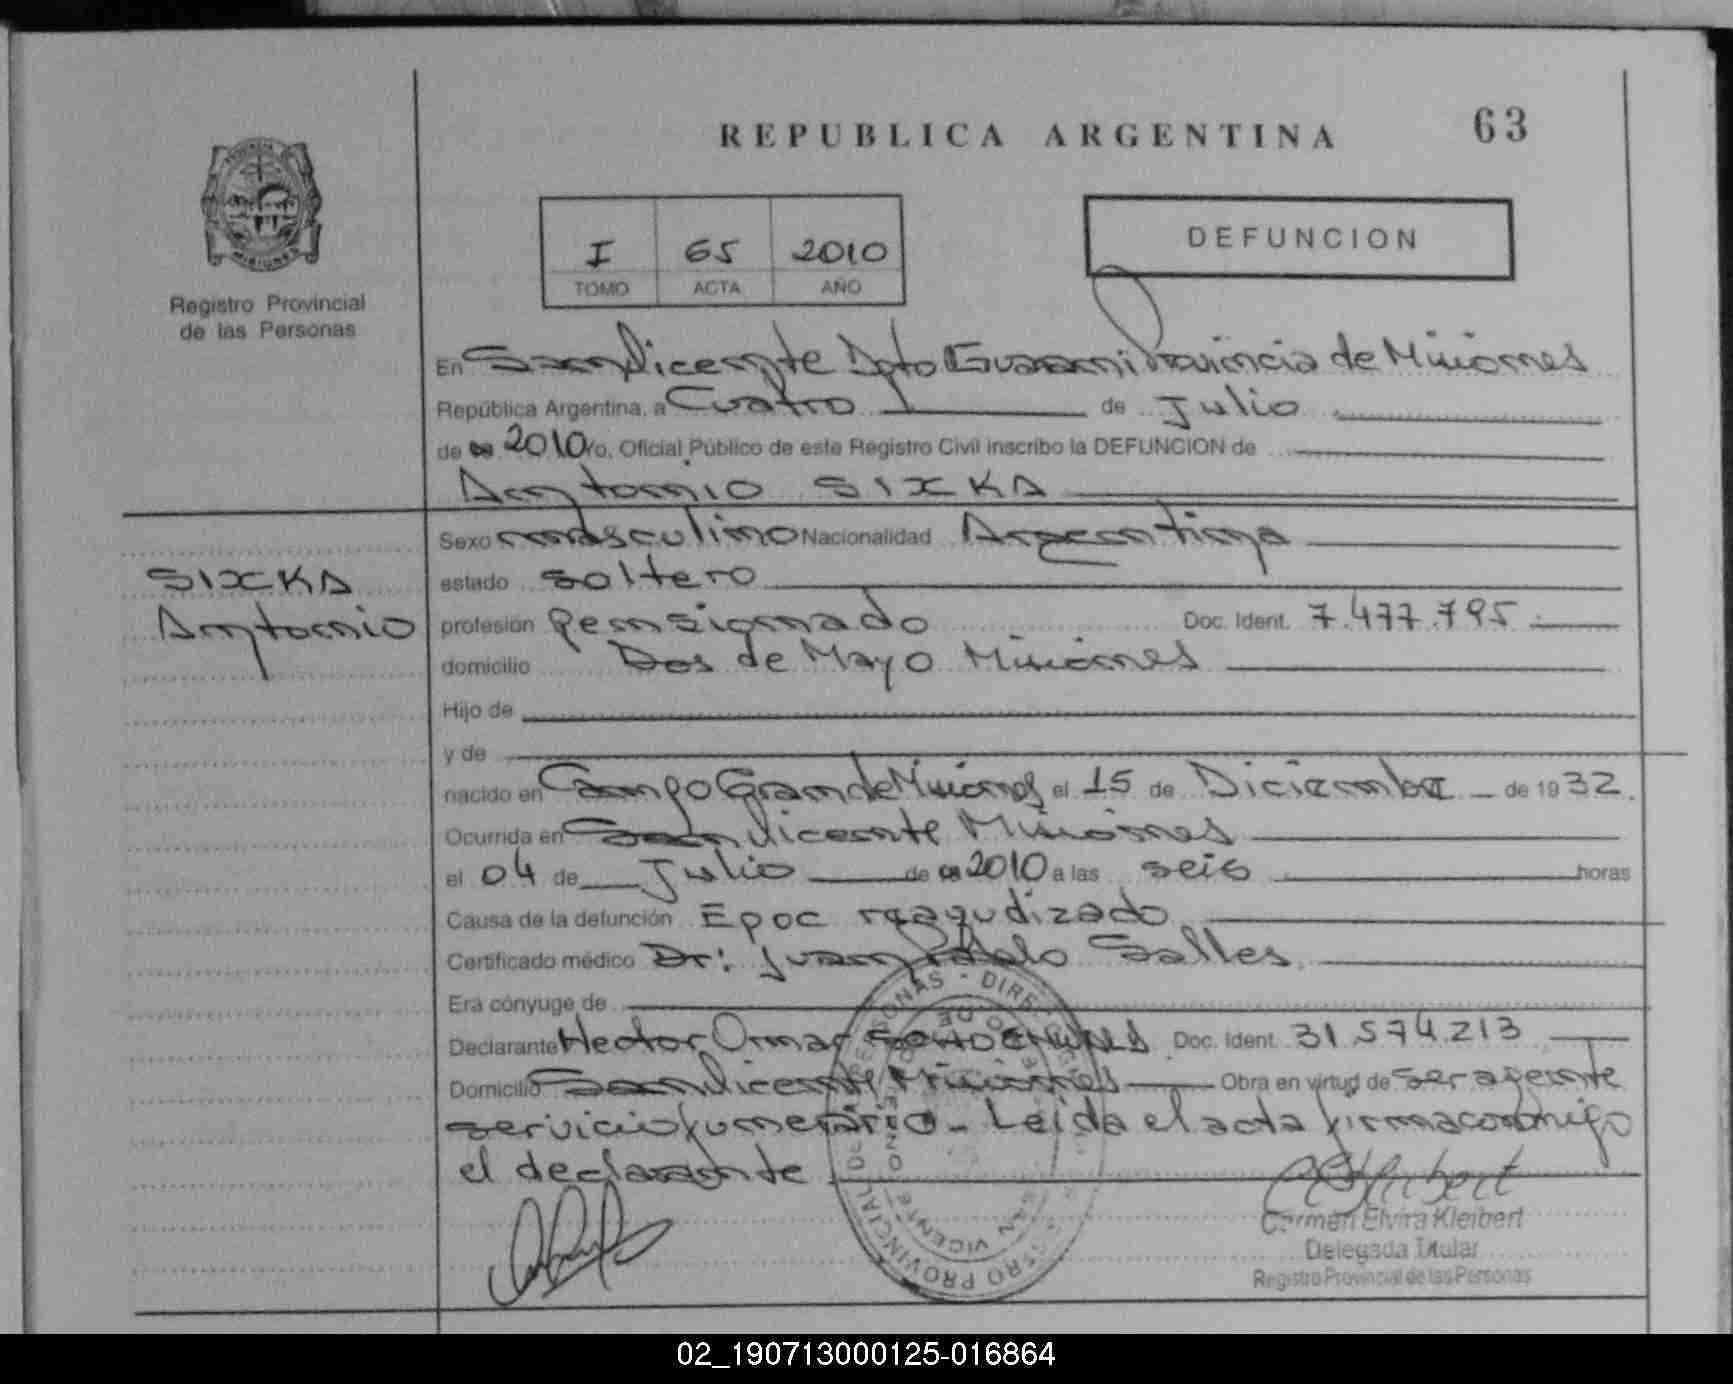 REPUBLICA ARGENTINA
63
I 65 2010
TOMO ACTA AÑO
DEFUNCION
PROVINCIA
MISIONES
Registro Provincial
de las Personas
En San Vicente Dpto Guarani Provincia de Misiones
República Argentina, a Cuatro de Julio
de 2010 Yo, Oficial Público de este Registro Civil inscribo la DEFUNCION de
Antonio SIXKA
SIXKA
Antonio
Sexo masculino Nacionalidad Argentina
estado soltero
profesión Pensionado Doc. Ident. 7.477.795
domicilio Dos de Mayo Misiones
Hijo de
y de
nacido en Campo Grande Misiones el 15 de Diciembre de 1932.
Ocurrida en San Vicente Misiones
el 04 de Julio de 2010 a las seis horas
Causa de la defunción Epoc reagudizado
Certificado médico Dr: Juan Pablo Salles
Era cónyuge de
Declarante Hector Omar Doc. Ident. 31.574.213
Domicilio San Vicente Misiones Obra en virtud de ser agente
servicio funerario - Leida el acta firma conmigo
el declarante
SAN VICENTE
REGISTRO PROVINCIAL DE LAS PERSONAS
Carmen Elvira Kleibert
Delegada Titular
Registro Provincial de las Personas
02_190713000125-016864